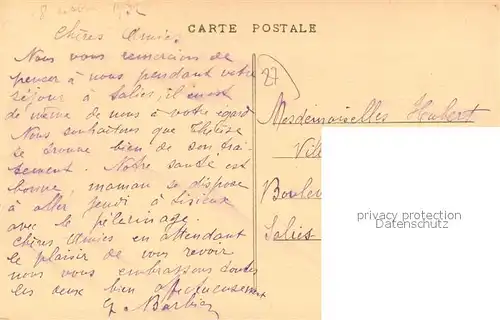 CARTE POSTALE
Chères Amies,
Nous vous remercions de
penser à nous pendant votre
séjour à Salies, il en est
de même de nous à votre égard
Nous souhaitons que Thérèse
se trouve bien de son trai-
tement. Notre santé est
bonne, maman se dispose
à aller jeudi à Lisieux
avec le pèlerinage.
Chères Amies en attendant
le plaisir de vous revoir
nous vous embrassons toutes
les deux bien affectueusement
Barbier
27
Mesdemoiselles Hubert
Vill
Boulev
Salies
privacy protection
Datenschutz